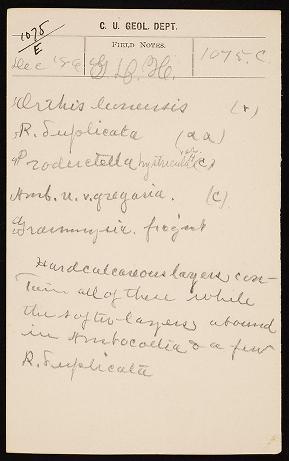 1075
E
C. U. GEOL. DEPT.
FIELD NOTES.
Dec '86 G. D. H. 1075. C.
Orthis leonensis (r)
R. Duplicata (a a)
Productella hystricula var. (c)
Amb. u. v. gregaria. (c)
Grammysia. fragmt
Hard calcareous layers con-
tain all of these while
the softer layers abound
in Ambocoelia & a few
R. Duplicata